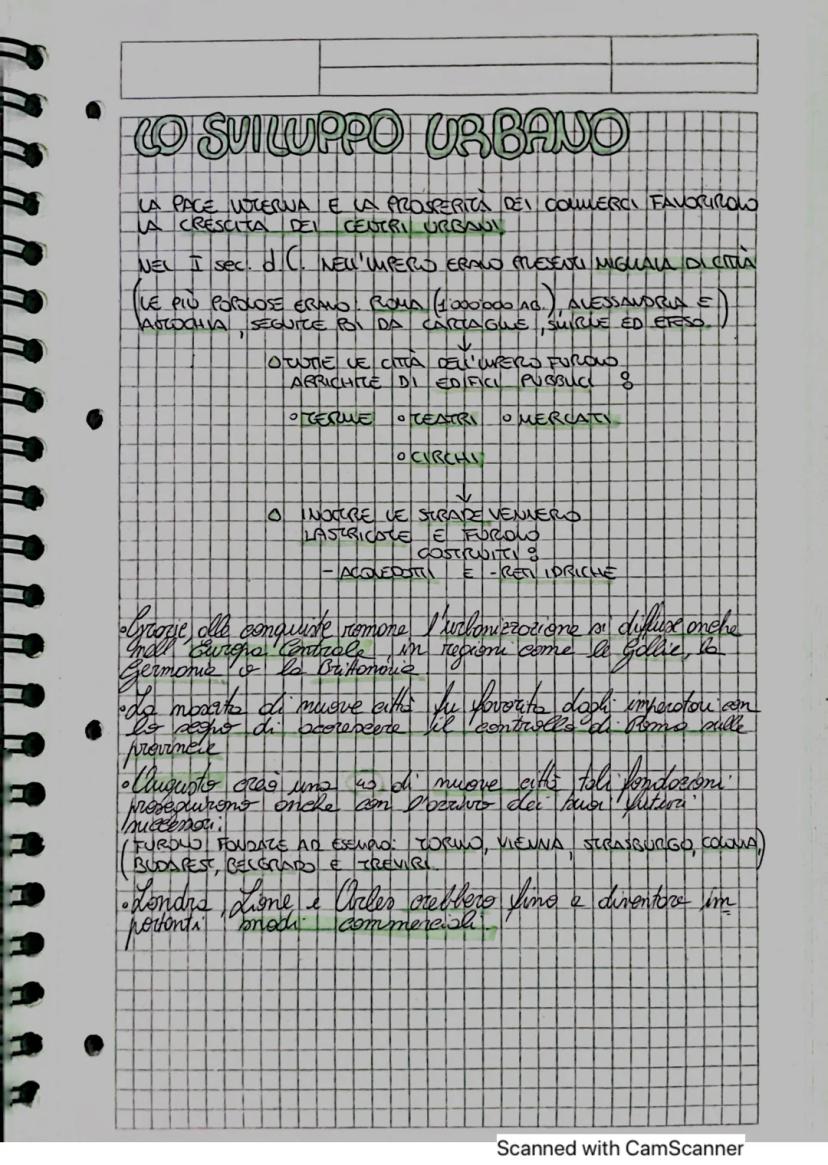 LO SVILUPPO URBANO
LA PACE INTERNA E LA PROSPERITÀ DEI COMMERCI FAVORIRONO
LA CRESCITA DEI CENTRI URBANI.
NEL I sec. d.C. NELL'IMPERO ERANO PRESENTI MIGLIAIA DI CITTÀ
(LE PIÙ POPOLOSE ERANO: ROMA (1'000'000 AB.), ALESSANDRIA E
ANTIOCHIA, SEGUITE POI DA CARTAGINE, SMIRNE ED EFESO.)
↓
TUTTE LE CITTÀ DELL'IMPERO FURONO
ARRICHITE DI EDIFICI PUBBLICI:
• TERME • TEATRI • MERCATI
• CIRCHI
↓
INOLTRE LE STRADE VENNERO
LASTRICATE E FURONO
COSTRUITI:
- ACQUEDOTTI E - RETI IDRICHE
• Grazie alle conquiste romane, l'urbanizzazione si diffuse anche
nell'Europa Centrale, in regioni come le Gallie, la
Germania o la Britannia
• La nascita di nuove città fu favorita dagli imperatori con
lo scopo di accrescere il controllo di Roma sulle
provincie
• Augusto creò una 40 di nuove città tali fondazioni
proseguirono anche con l'arrivo dei suoi futuri
successori:
(FURONO FONDATE AD ESEMPIO: TORINO, VIENNA, STRASBURGO, COLONIA,
BUDAPEST, BELGRADO E TREVIRI.)
• Londra, Lione e Arles crebbero fino a diventare im=
portanti snodi commerciali.
Scanned with CamScanner